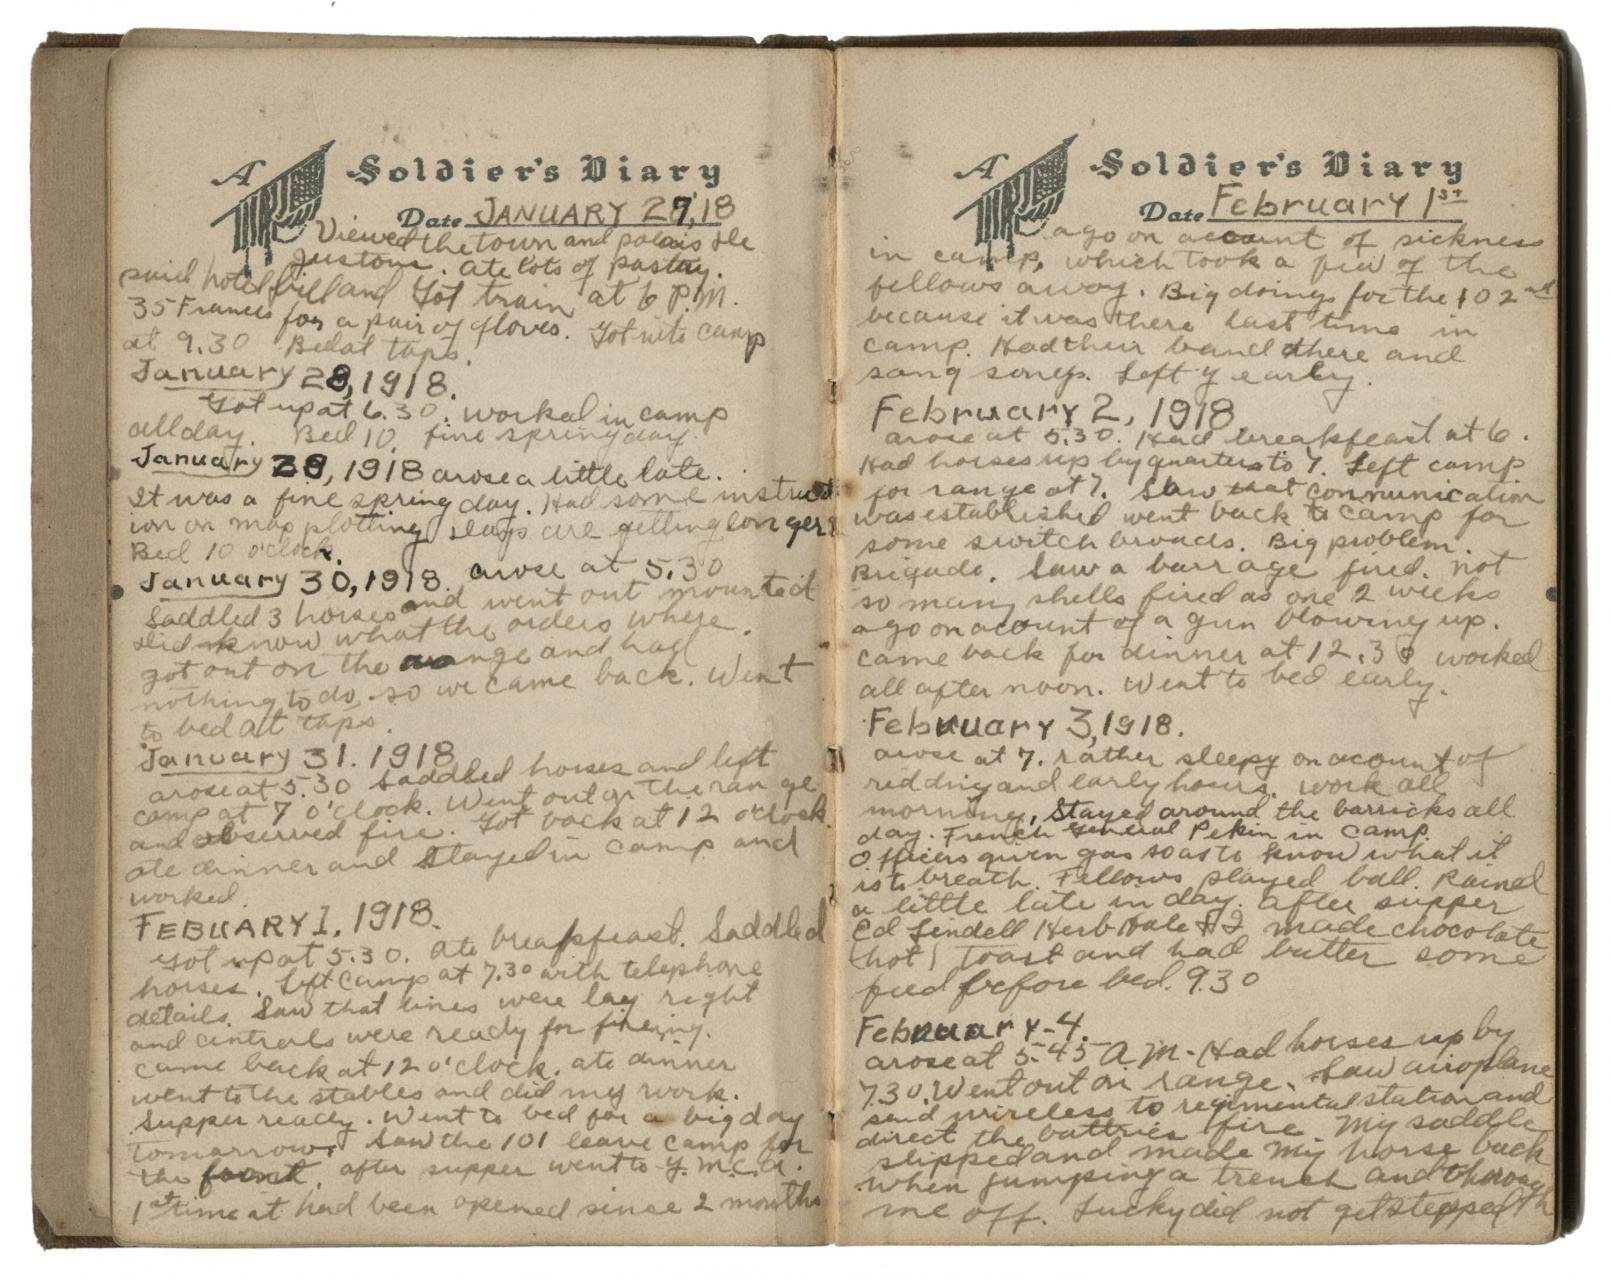 A Soldier's Diary
Date JANUARY 27, 18
Viewed the town and palais de
Justone. ate lots of pastay.
paid hotel bill and Got train at 6 P.M.
35 Francs for a pair of gloves. Got into camp
at 9.30 Bed at taps.
January 28, 1918.
Got up at 6.30. worked in camp
all day. Bed 10. fine spring day
January 29, 1918 arose a little late.
It was a fine spring day. Had some instruct
ion on map plotting days are getting longer
Bed 10 o'clock.
January 30, 1918. arose at 5.30
Saddled 3 horses and went out mounted
did know what the orders where.
got out on the range and had
nothing to do, so we came back. Went
to bed at taps.
January 31. 1918
arose at 5.30 Saddled horses and left
camp at 7 o'clock. Went out on the range
and observed fire. Got back at 12 o'clock.
ate dinner and Stayed in camp and
worked.
FEBUARY 1, 1918.
Got up at 5.30. ate breakfeast. Saddled
horses. Left camp at 7.30 with telephone
details. Saw that lines were lay right
and centrals were ready for fireing.
came back at 12 o'clock. ate dinner
went to the stables and did my work.
Supper ready. Went to bed for a big day
tomarrow. Saw the 101 leave camp for
the front. after supper went to Y.M.C.A.
1st time at had been opened since 2 months
A Soldier's Diary
Date February 1st
ago on account of sickness
in camp, which took a few of the
fellows away. Big doings for the 102nd
because it was there last time in
camp. Had their band there and
sang songs. Left Y early.
February 2, 1918
arose at 5.30. Had breakfeast at 6.
Had horses up by quarter to 7. Left camp
for range at 7. Saw that communication
was established went back to camp for
some switch broads. Big problem.
Brigade. Saw a barrage fired. not
so many shells fired as one 2 weeks
ago on account of a gun blowing up.
came back for dinner at 12.30 worked
all after noon. Went to bed early.
February 3, 1918.
arose at 7. rather sleepy on account of
redding and early hours. work all
morning, Stayed around the barricks all
day. French General Pekin in camp.
Officers given gas so as to know what it
is to breath. Fellows played ball. Rained
a little late in day. after supper
Ed Lendell Herb Hale & I made chocolate
(hot) toast and had butter some
feed before bed. 9.30
February-4.
arose at 5-45 A.M. Had horses up by
7.30. Went out on range. Saw airoplane
send wireless to regimental station and
direct the battries fire My saddle
slipped and made my horse back
when jumping a trench and through
me off. Lucky did not get stepped